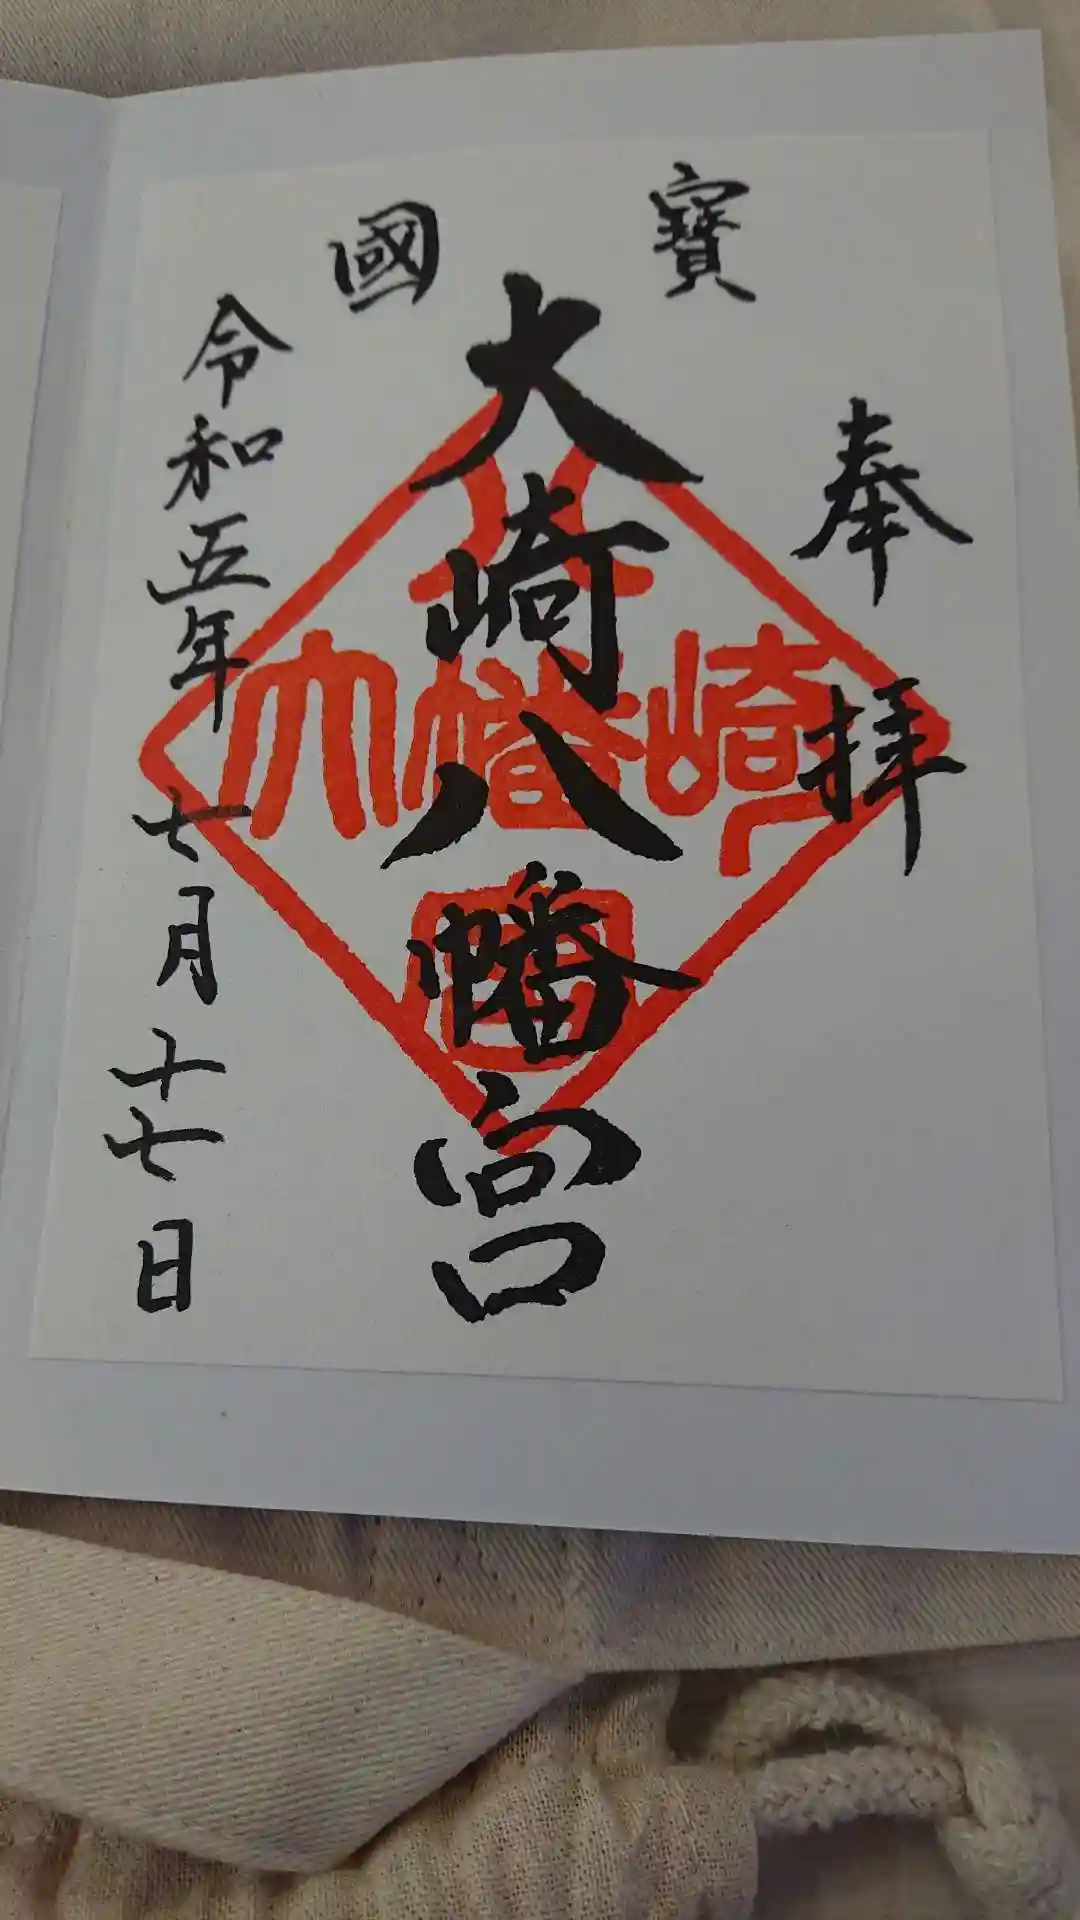 奉拝
國寳
大崎八幡宮
令和五年七月十七日
大崎八幡宮